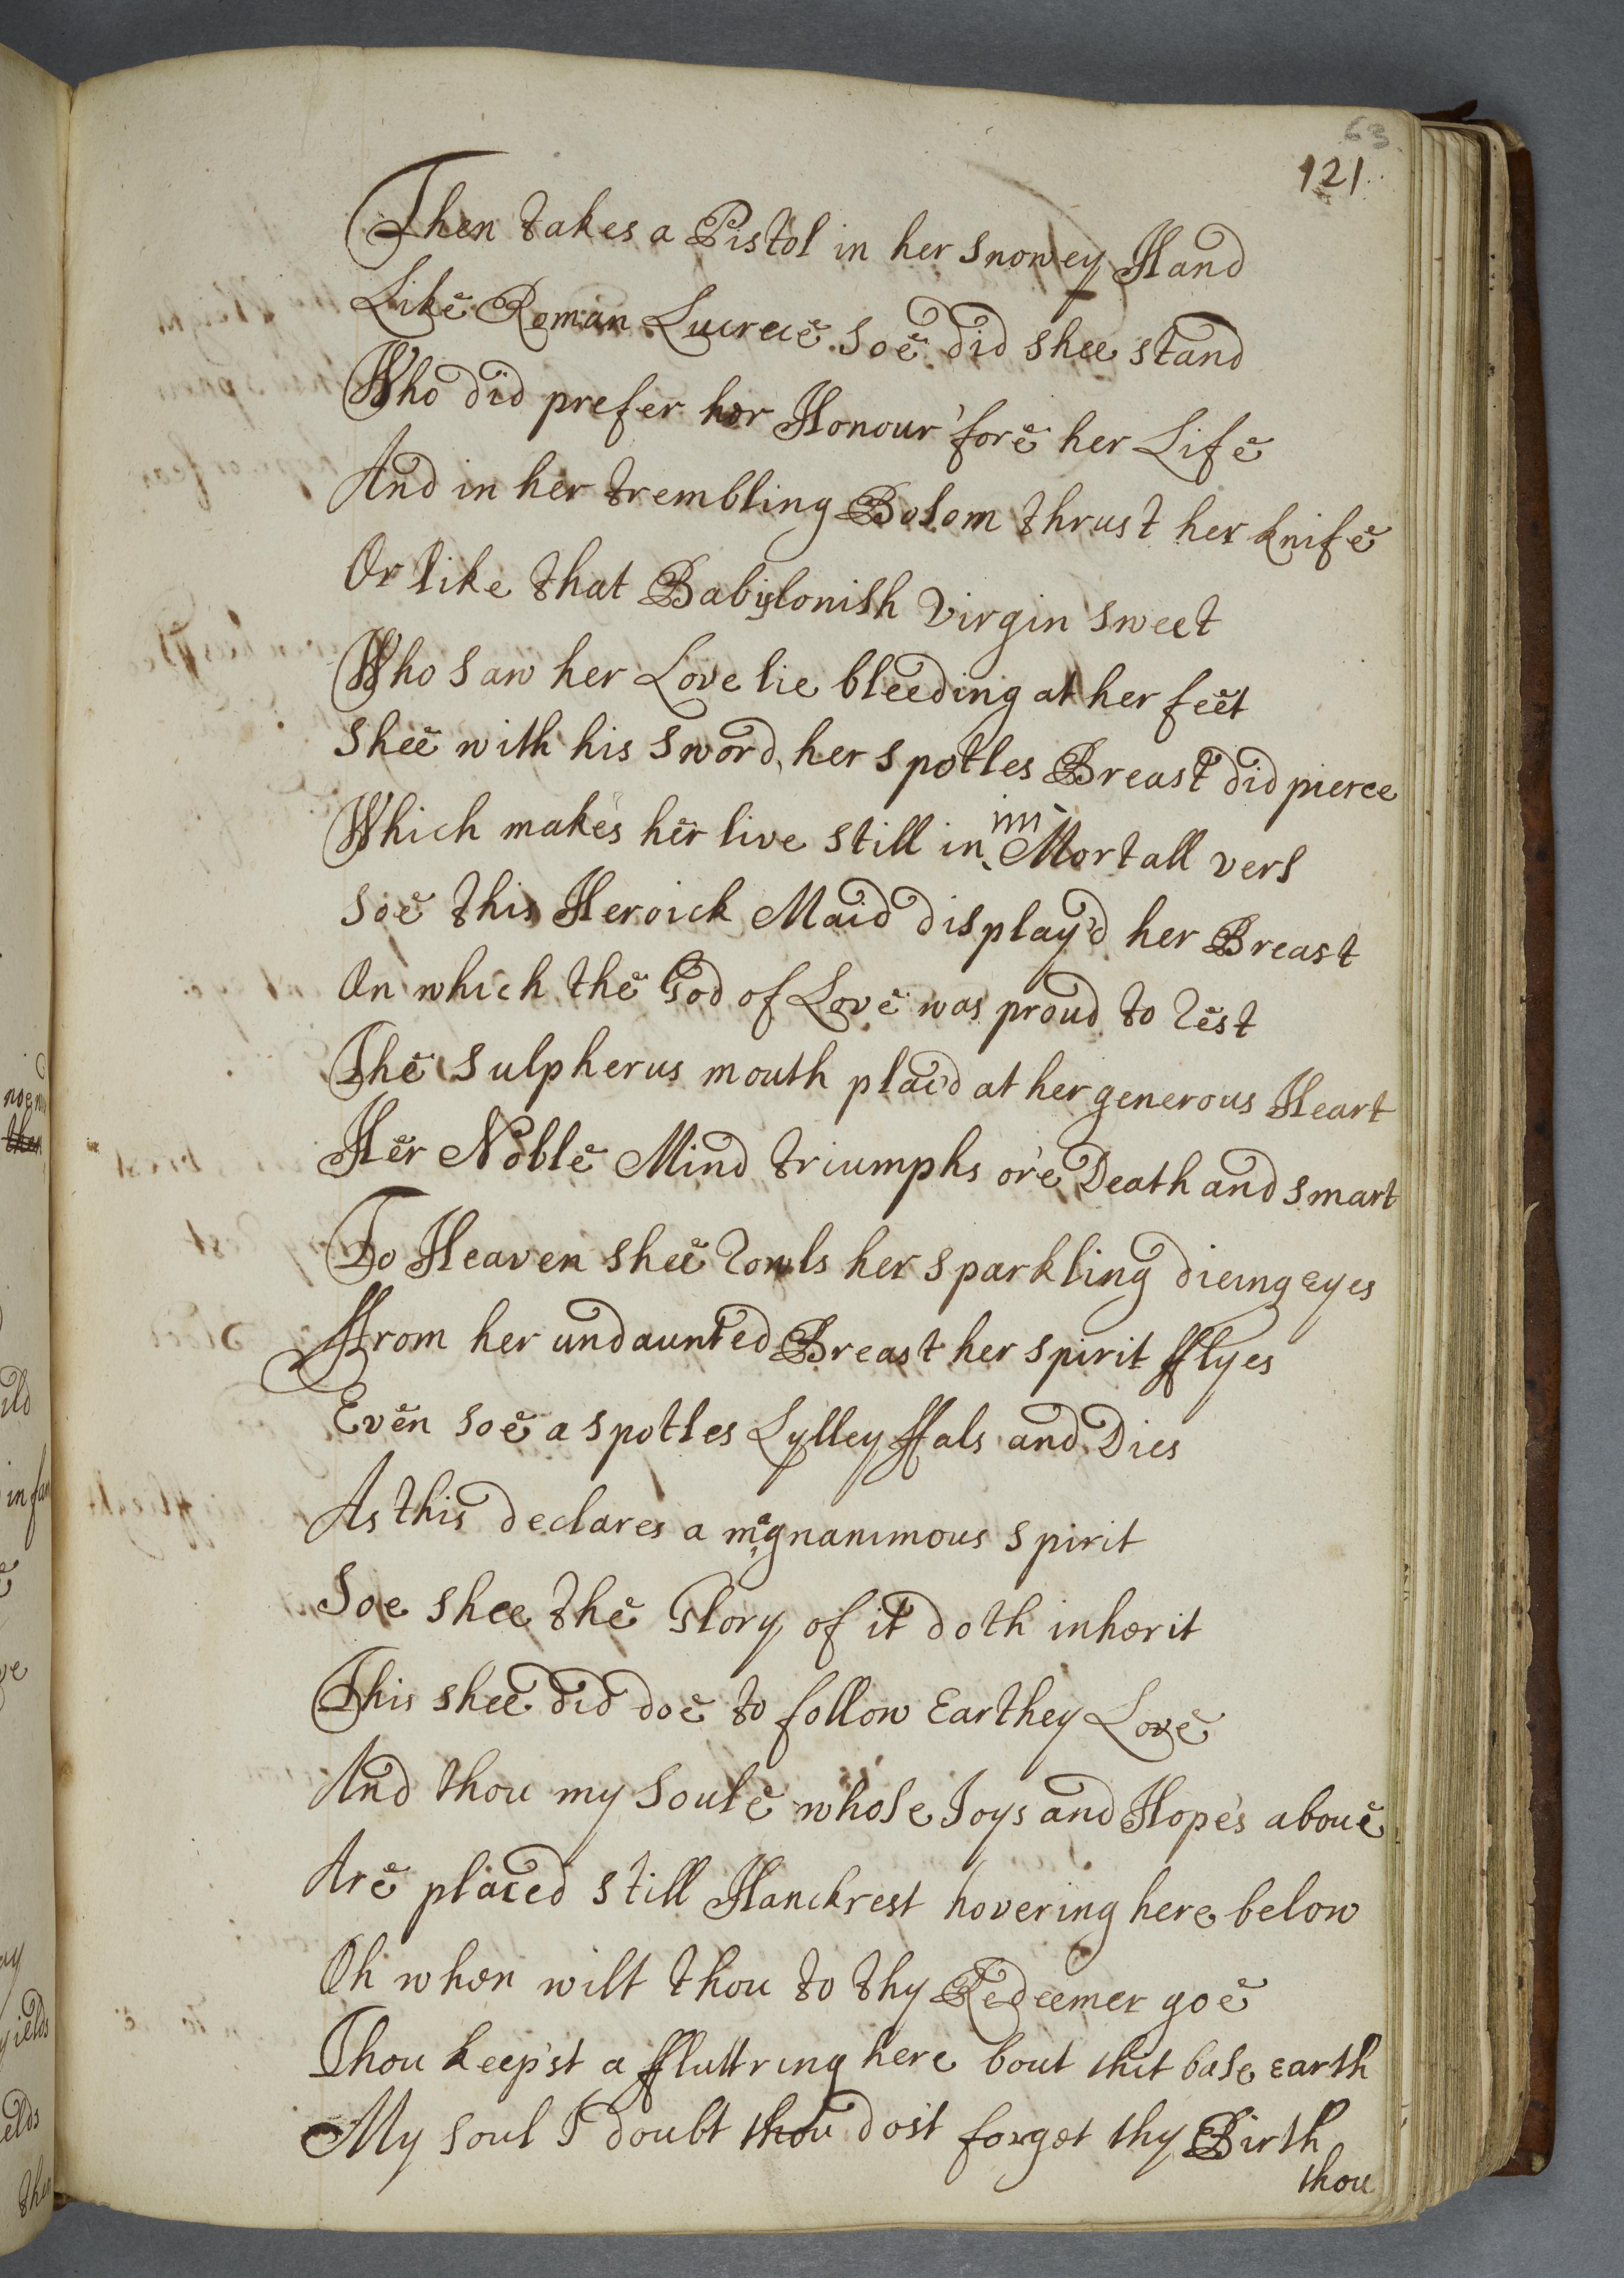 63
121
Then takes a Pistol in her snowey Hand
Like Roman Lucrece soe did shee stand
Who did prefer her Honour 'fore her Life
And in her trembling Bosom thrust her knife
Or like that Babylonish Virgin sweet
Who saw her Love lie bleeding at her feet
Shee with his sword, her spotles Breast did pierce
Which makes her live still in im Mortall vers
Soe this Heroick Maid display'd her Breast
On which the God of Love was proud to rest
The Sulpherus mouth plac'd at her generous Heart
Her Noble Mind triumphs o're Death and smart
To Heaven shee rowls her sparkling dieing eyes
From her undaunted Breast her spirit fflyes
Even soe a spotles Lylley ffals and Dies
As this declares a magnanimous spirit
Soe shee the Glory of it doth inherit
This shee did doe to follow Earthey Love
And thou my Soule whose Joys and Hopes aboue
Are placed still Hanckrest hovering here below
Oh when wilt thou to thy Redeemer goe
Thou keep'st a ffluttring here bout this base earth
My soul I doubt thou dost forget thy Birth
thou